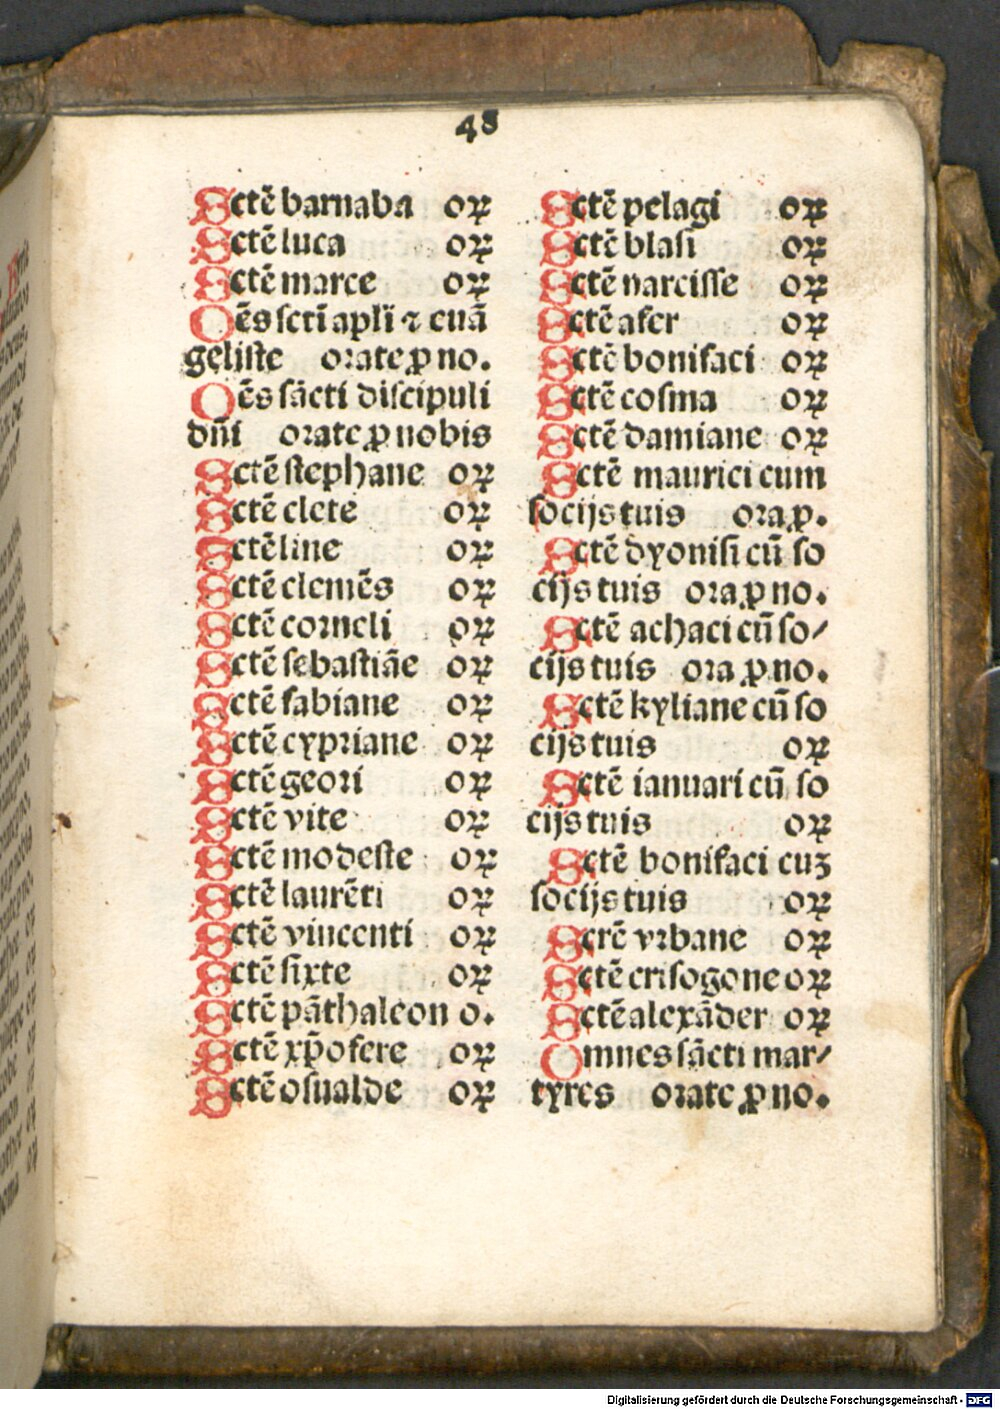 48
Sctē barnaba oꝝ
Sctē luca oꝝ
Sctē marce oꝝ
Oēs scti apl̄i ⁊ euā
geliſte orate ꝓ no.
Oēs ſācti diſcipuli
dn̄i orate ꝓ nobis
Sctē ſtephane oꝝ
Sctē clete oꝝ
Sctē line oꝝ
Sctē clemēs oꝝ
Sctē corneli oꝝ
Sctē ſebaſtiāe oꝝ
Sctē fabiane oꝝ
Sctē cypriane oꝝ
Sctē geori oꝝ
Sctē vite oꝝ
Sctē modeſte oꝝ
Sctē laurēti oꝝ
Sctē vincenti oꝝ
Sctē ſixte oꝝ
Sctē pāthaleon o.
Sctē xp̄ofere oꝝ
Sctē oſualde oꝝ
Sctē pelagi oꝝ
Sctē blaſi oꝝ
Sctē narciſſe oꝝ
Sctē afer oꝝ
Sctē bonifaci oꝝ
Sctē coſma oꝝ
Sctē damiane oꝝ
Sctē maurici cum
ſocijs tuis ora ꝓ.
Sctē dyoniſi cū ſo
cijs tuis ora ꝓ no.
Sctē achaci cū ſo/
cijs tuis ora ꝓ no.
Sctē kyliane cū ſo
cijs tuis oꝝ
Sctē ianuari cū ſo
cijs tuis oꝝ
Sctē bonifaci cuʒ
ſocijs tuis oꝝ
Scrē vrbane oꝝ
Sctē criſogone oꝝ
Sctē alexāder oꝝ
Omnes ſācti mar/
tyres orate ꝓ no.
Digitalisierung gefördert durch die Deutsche Forschungsgemeinschaft - DFG